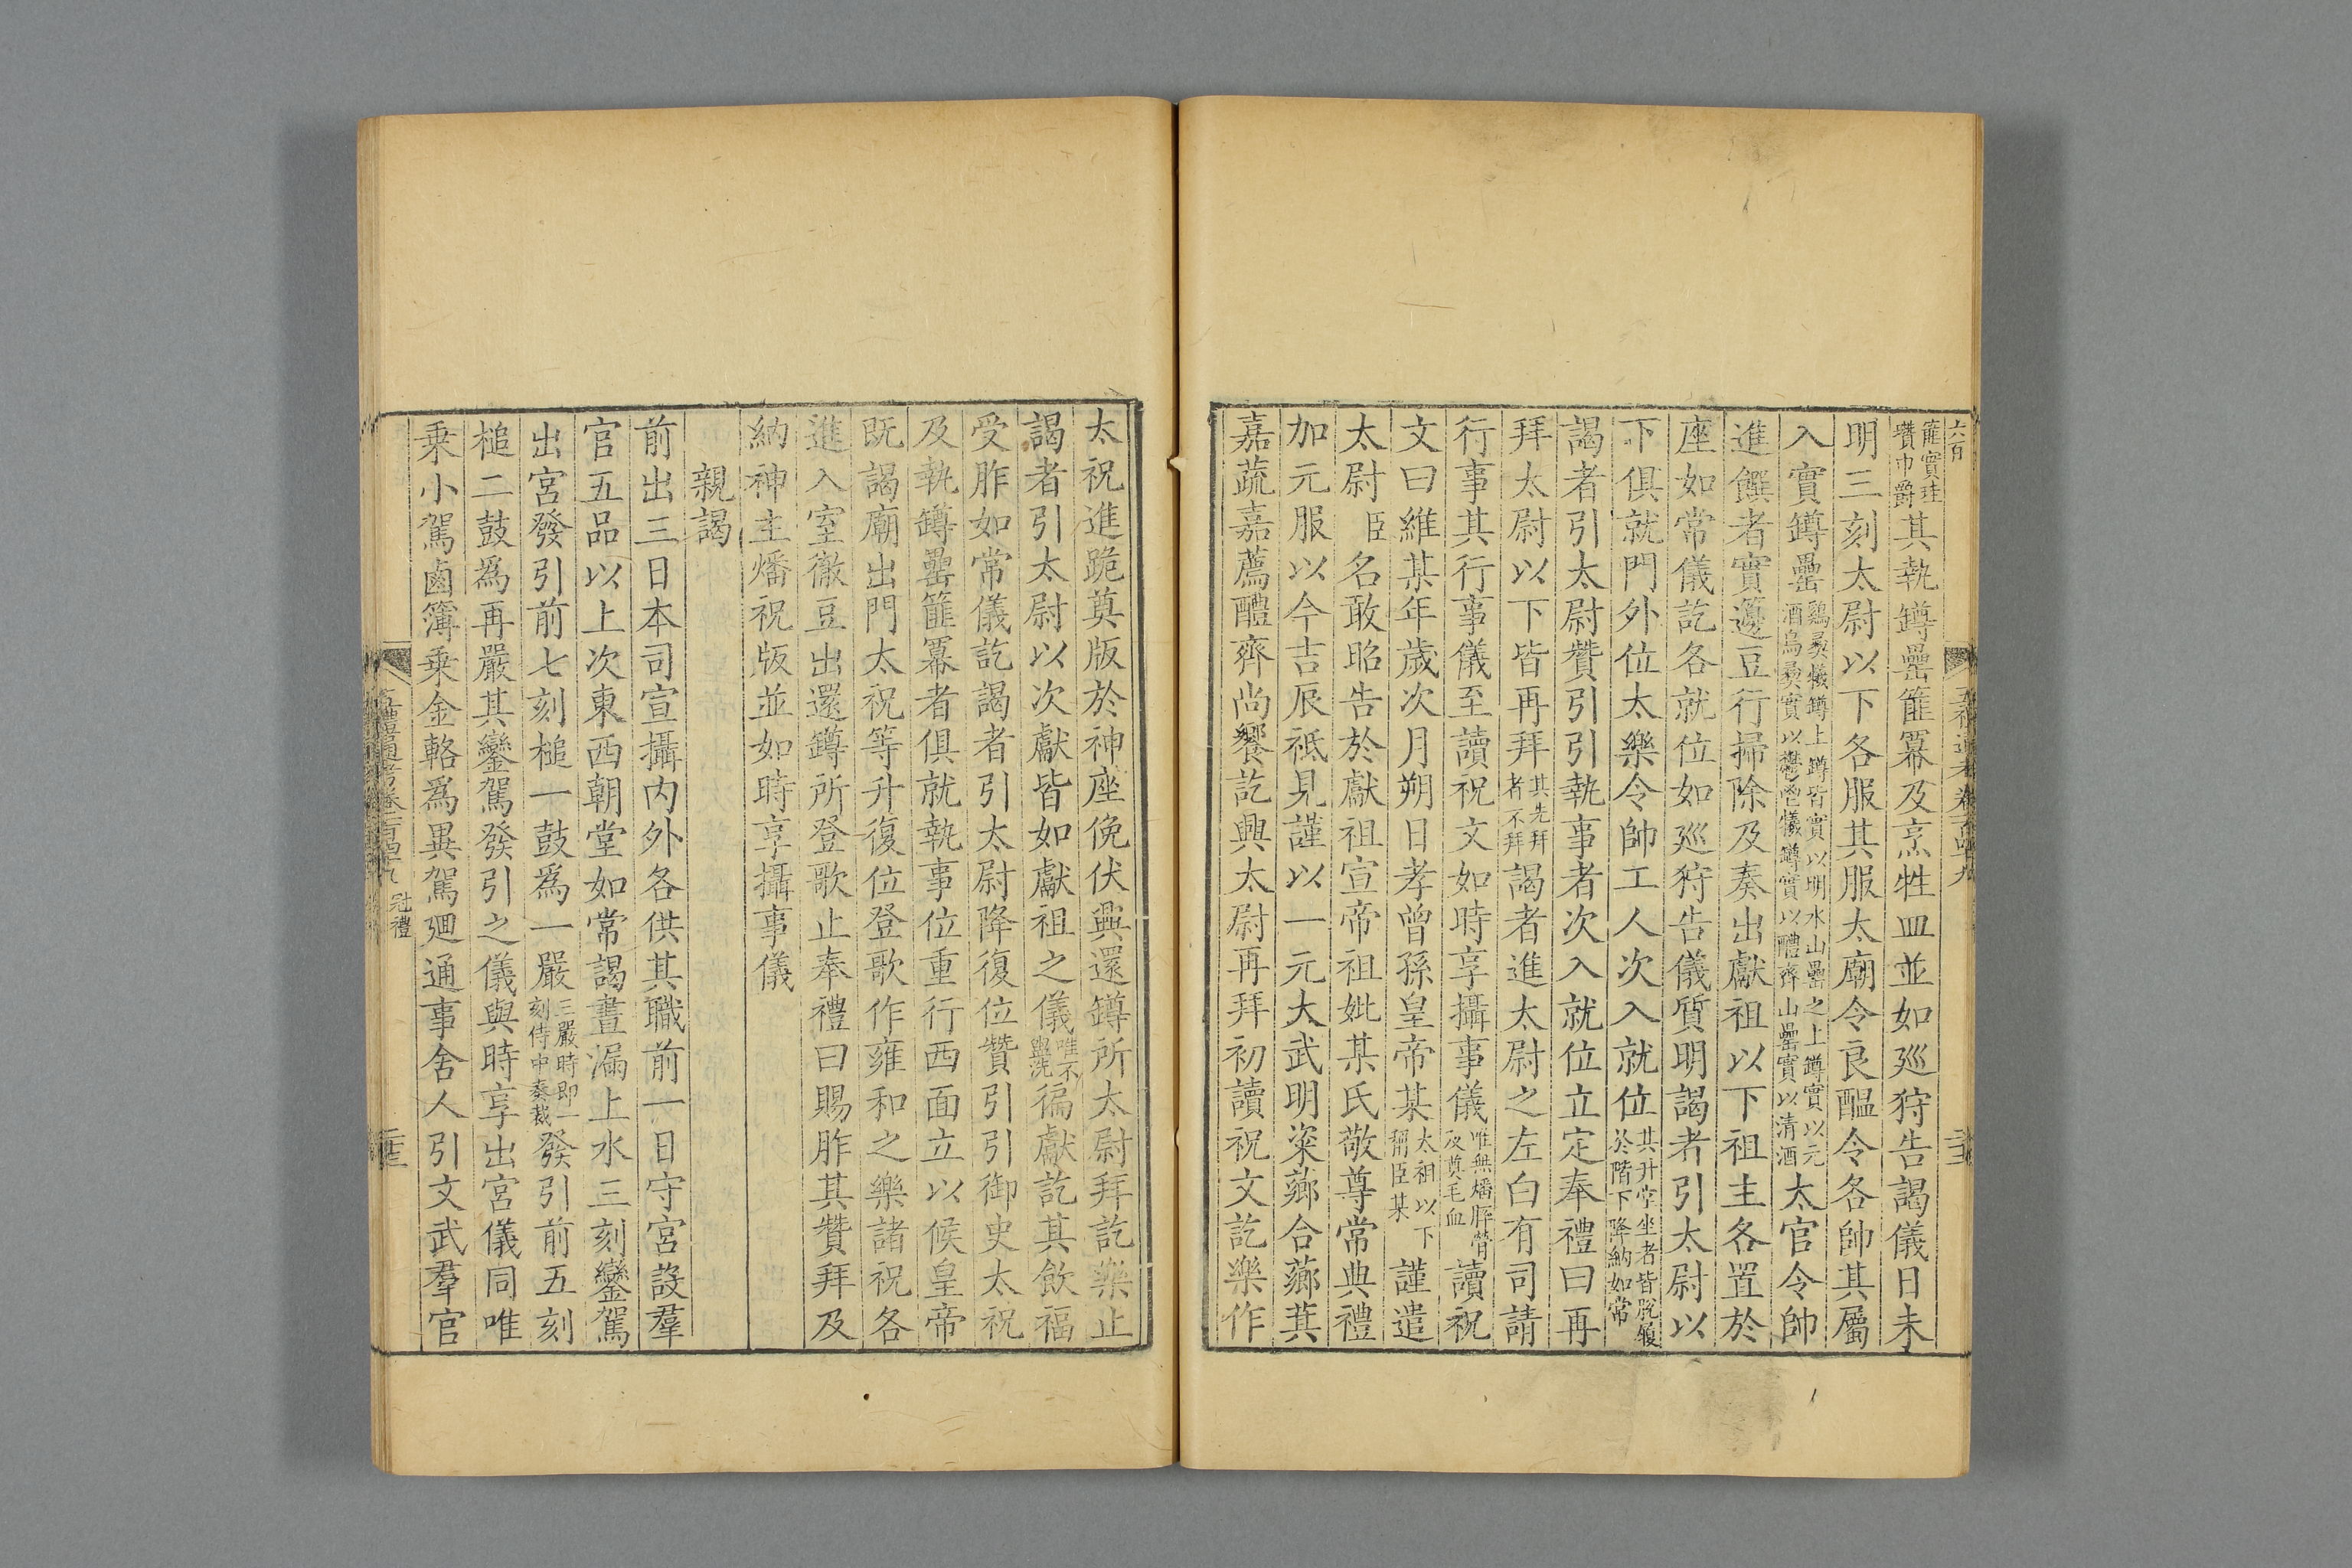 篚實珪瓚巾爵其執罇罍篚冪及烹牲皿並如廵狩告謁儀日未
明三刻太尉以下各服其服太廟令良醞令各帥其屬
入實罇罍雞彞犧罇上罇皆實以明水山罍之上罇實以元酒鳥彞實以鬱鬯犧罇實以醴齊山罍實以清酒太官令帥
進饌者實籩豆行掃除及奏出獻祖以下祖主各置於
座如常儀訖各就位如廵狩告儀質明謁者引太尉以
下俱就門外位太樂令帥工人次入就位其升堂坐者皆脫履於階下降納如常
謁者引太尉贊引引執事者次入就位立定奉禮曰再
拜太尉以下皆再拜其先拜者不拜謁者進太尉之左白有司請
行事其行事儀至讀祝文如時享攝事儀唯無燔膟膋及奠毛血讀祝
文曰維某年歲次月朔日孝曾孫皇帝某太祖以下稱臣某謹遣
太尉臣名敢昭告於獻祖宣帝祖妣某氏敬尊常典禮
加元服以今吉辰祗見謹以一元大武明粢薌合薌萁
嘉蔬嘉薦醴齊尚饗訖興太尉再拜初讀祝文訖樂作
太祝進跪奠版於神座俛伏興還罇所太尉拜訖樂止
謁者引太尉以次獻皆如獻祖之儀唯不盥洗徧獻訖其飲福
受胙如常儀訖謁者引太尉降復位贊引引御史太祝
及執罇罍篚冪者俱就執事位重行西面立以候皇帝
既謁廟出門太祝等升復位登歌作雍和之樂諸祝各
進入室徹豆出還罇所登歌止奉禮曰賜胙其贊拜及
納神主燔祝版並如時享攝事儀
親謁
前出三日本司宣攝內外各供其職前一日守宮設羣
官五品以上次東西朝堂如常謁晝漏上水三刻鑾駕
出宮發引前七刻槌一鼓爲一嚴三嚴時即一刻侍中奏裁發引前五刻
槌二鼓爲再嚴其鑾駕發引之儀與時享出宮儀同唯
乘小駕鹵簿乘金輅爲異駕廻通事舍人引文武羣官
冠禮